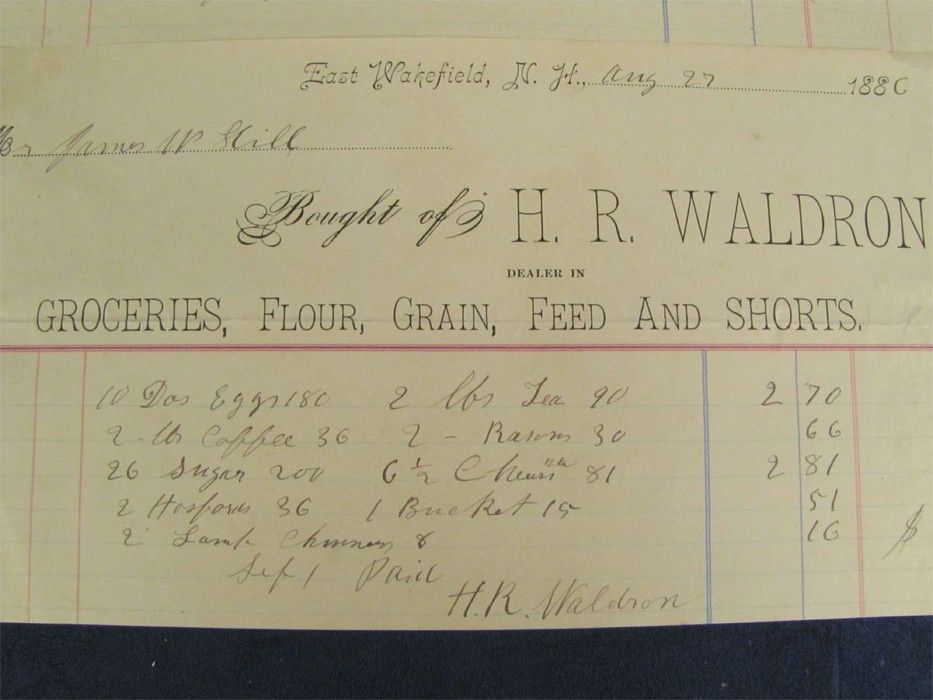 East Wakefield, N. H., Aug 27 1886
Mr James W Hill
Bought of H. R. WALDRON
DEALER IN
GROCERIES, FLOUR, GRAIN, FEED AND SHORTS.
10 Dos Eggs 180 2 lbs Tea 90 2 70
2 lb Coffee 36 2 - Rasons 30 66
26 Sugar 200 6 1/2 81 2 81
2 36 1 Bucket 15 51
2 Lamp 8 16 $
Sep 1 Paid
H. R. Waldron